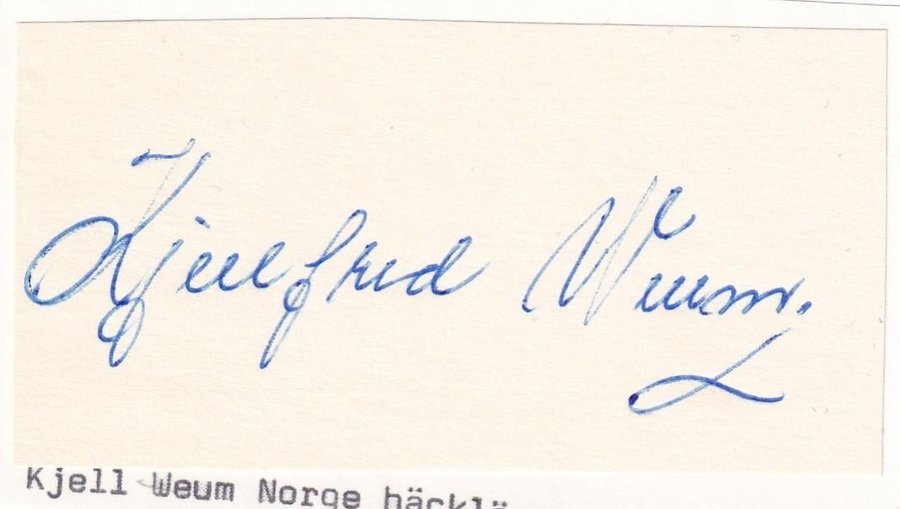 Kjellfrid Weum.
Kjell Weum Norge häcklö